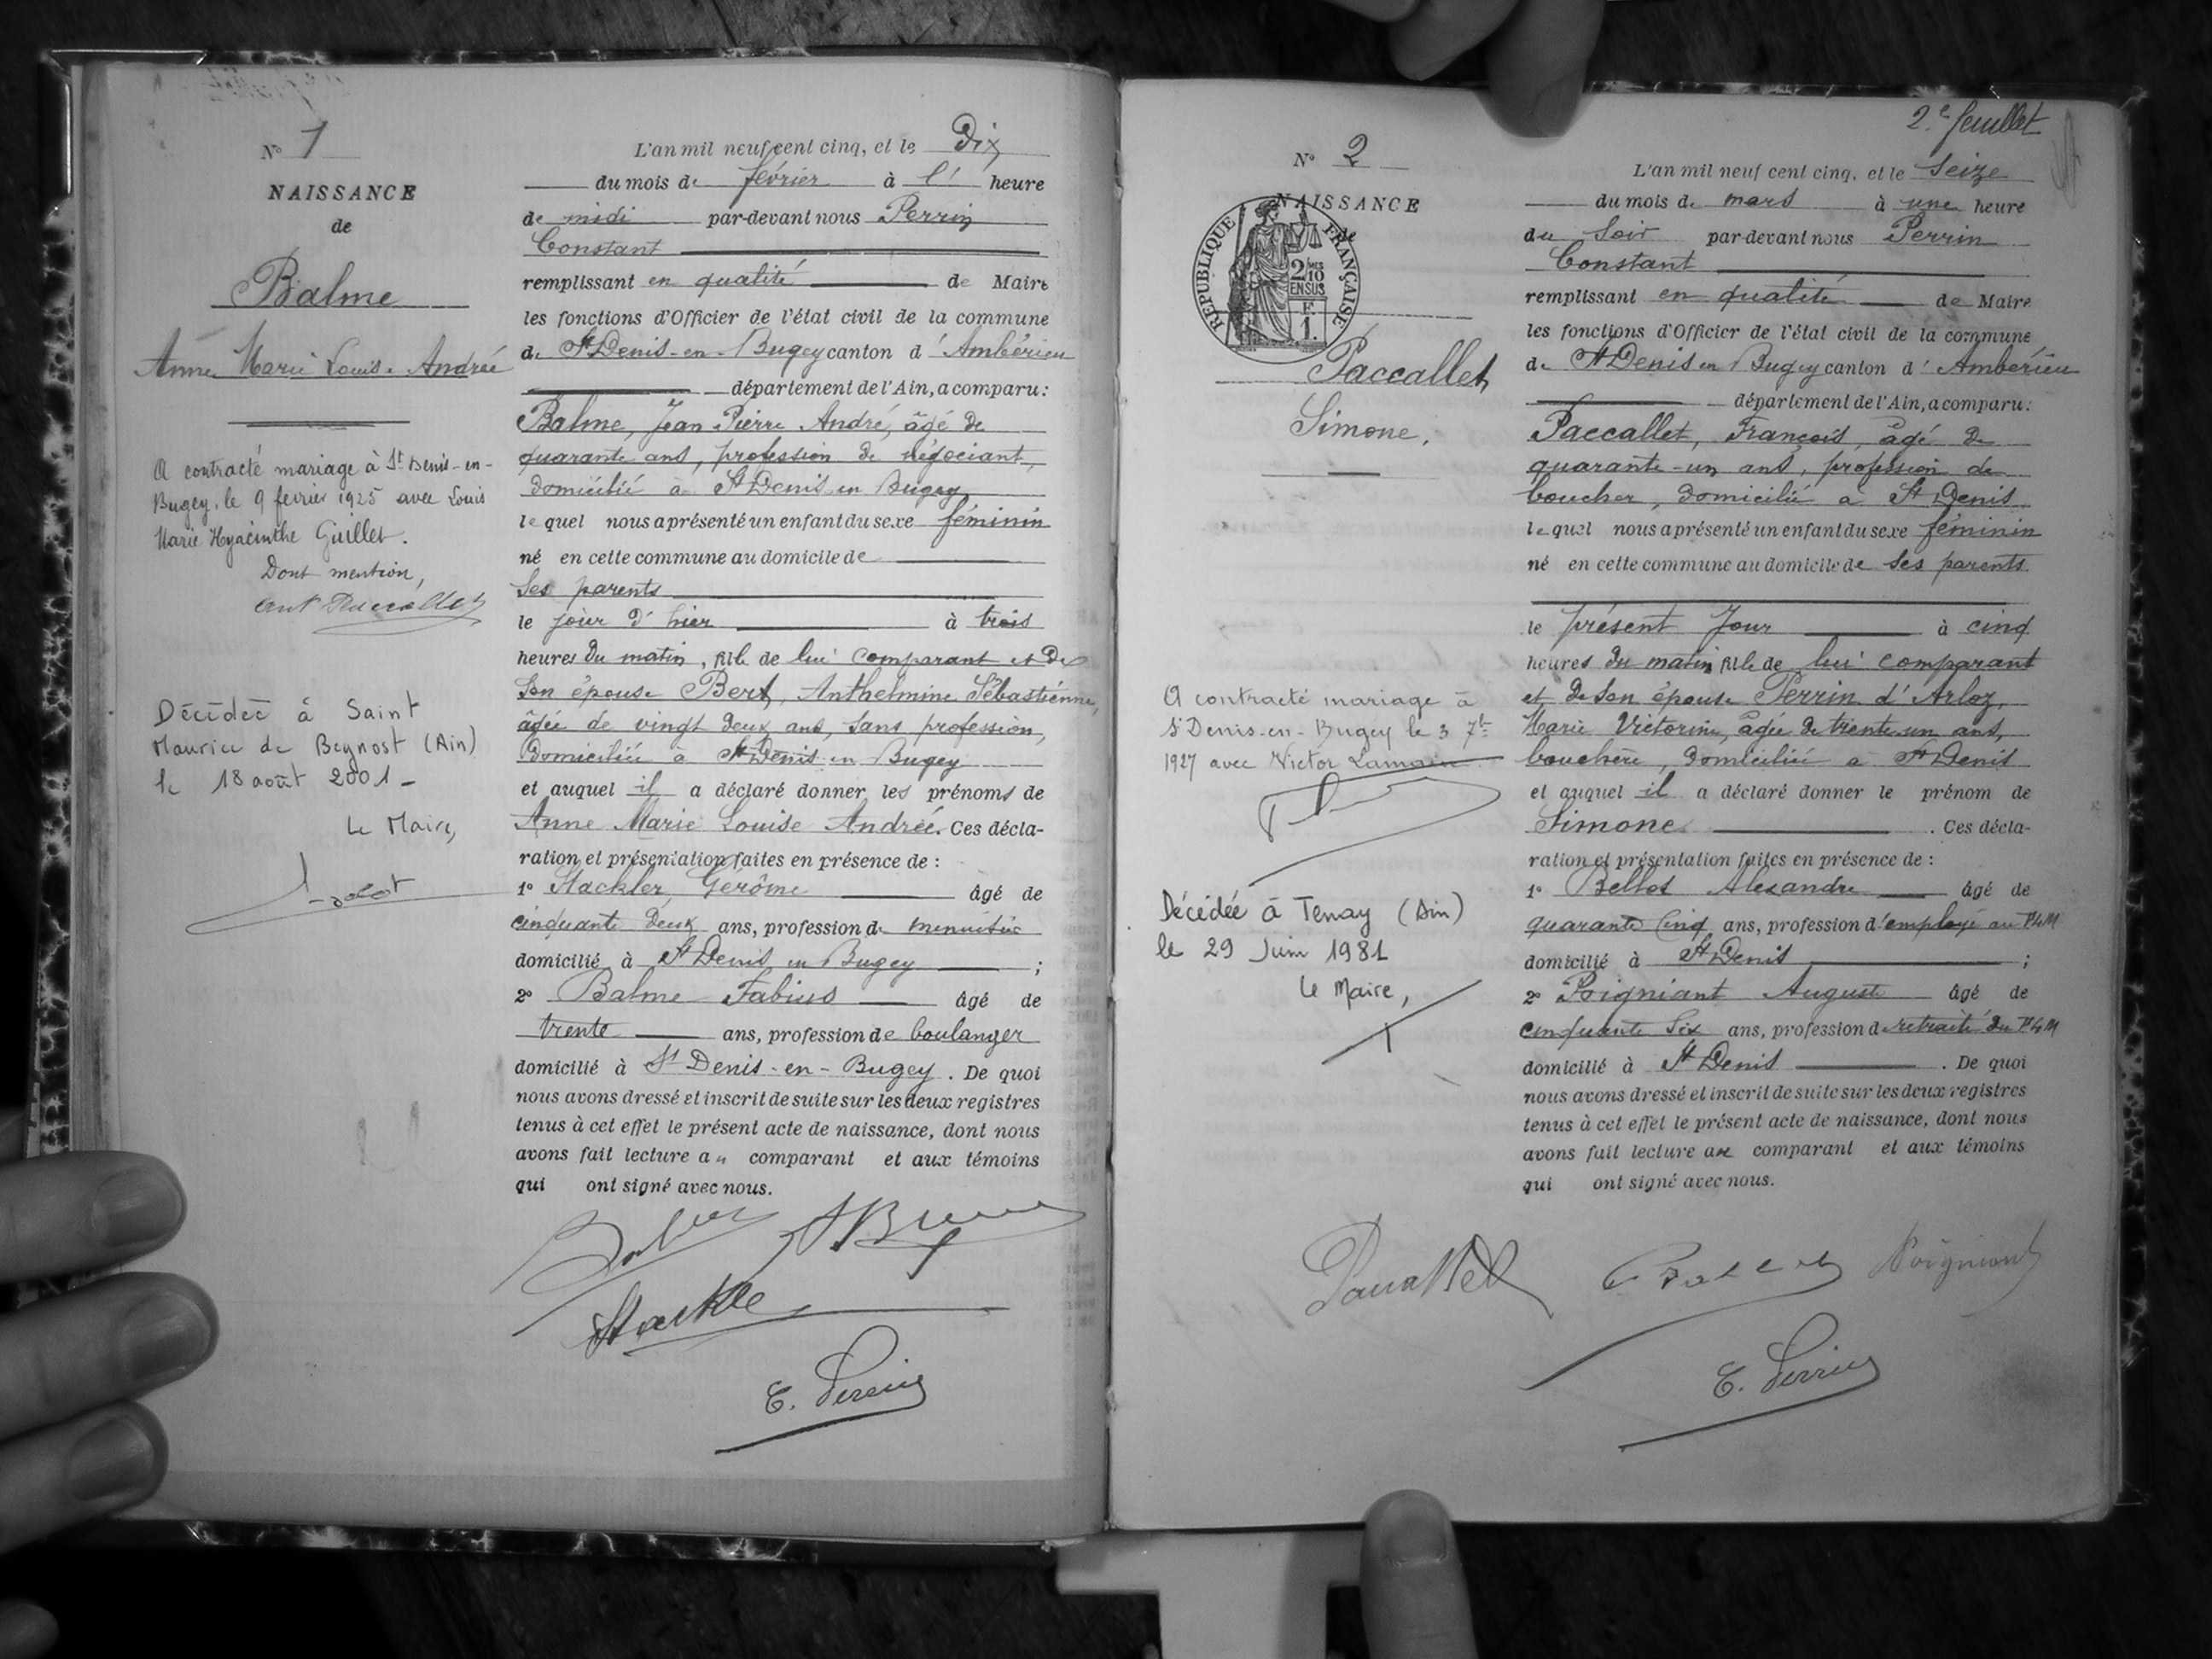 N° 1
NAISSANCE
de
Balme
Anne Marie Louise Andrée
A contracté mariage à St Denis-en-
Bugey, le 9 fevrier 1925 avec Louis
Marie Hyacinthe Guillet.
Dont mention,
Décédée à Saint
Maurice de Beynost (Ain)
le 18 août 2001 -
Le Maire,
L'an mil neuf cent cinq, et le Dix
du mois de février à l' heure
de midi par-devant nous Perrin
Constant
remplissant en qualité de Maire
les fonctions d'Officier de l'état civil de la commune
de St Denis-en-Bugey canton d'Ambérieu
département de l'Ain, a comparu:
Balme, Jean Pierre André, âgé de
quarante ans, profession de négociant,
domicilié à St Denis en Bugey
lequel nous a présenté un enfant du sexe féminin
né en cette commune au domicile de
ses parents
le jour d'hier à trois
heures du matin, fille de lui comparant et de
son épouse Bert, Anthelmine Sébastienne,
âgée de vingt deux ans, sans profession,
domiciliée à St Denis en Bugey
et auquel il a déclaré donner les prénoms de
Anne Marie Louise Andrée. Ces décla-
ration et présentation faites en présence de :
1° Stackler, Gérôme âgé de
cinquante deux ans, profession de menuisier
domicilié à St Denis en Bugey ;
2° Balme Fabius âgé de
trente ans, profession de boulanger
domicilié à St Denis-en-Bugey. De quoi
nous avons dressé et inscrit de suite sur les deux registres
tenus à cet effet le présent acte de naissance, dont nous
avons fait lecture au comparant et aux témoins
qui ont signé avec nous.
Stackle
C. Perrin
2.e feuillet
N° 2
NAISSANCE
de
RÉPUBLIQUE FRANÇAISE
2/10
EN SUS
F.
1.
Paccallet
Simone.
A contracté mariage à
St Denis-en-Bugey le 3 7bre
1927 avec Victor Lamain
Décédée à Tenay (Ain)
le 29 Juin 1981
Le Maire,
L'an mil neuf cent cinq, et le seize
du mois de mars à une heure
du soir par-devant nous Perrin
Constant
remplissant en qualité de Maire
les fonctions d'Officier de l'état civil de la commune
de St Denis en Bugey canton d'Ambérieu
département de l'Ain, a comparu:
Paccallet, François, âgé de
quarante-un ans, profession de
boucher, domicilié à St Denis
lequel nous a présenté un enfant du sexe féminin
né en cette commune au domicile de ses parents
le présent jour à cinq
heures du matin fille de lui comparant
et de son épouse Perrin d'Arloz,
Marie Victorine, âgée de trente-un ans,
bouchère, domiciliée à St Denis
et auquel il a déclaré donner le prénom de
Simone. Ces décla-
ration et présentation faites en présence de :
1° Bellot Alexandre âgé de
quarante cinq ans, profession d'employé au PLM
domicilié à St Denis ;
2° Poigniant Auguste âgé de
cinquante six ans, profession de retraité du PLM
domicilié à St Denis. De quoi
nous avons dressé et inscrit de suite sur les deux registres
tenus à cet effet le présent acte de naissance, dont nous
avons fait lecture au comparant et aux témoins
qui ont signé avec nous.
Paccallet Poigniant
C. Perrin